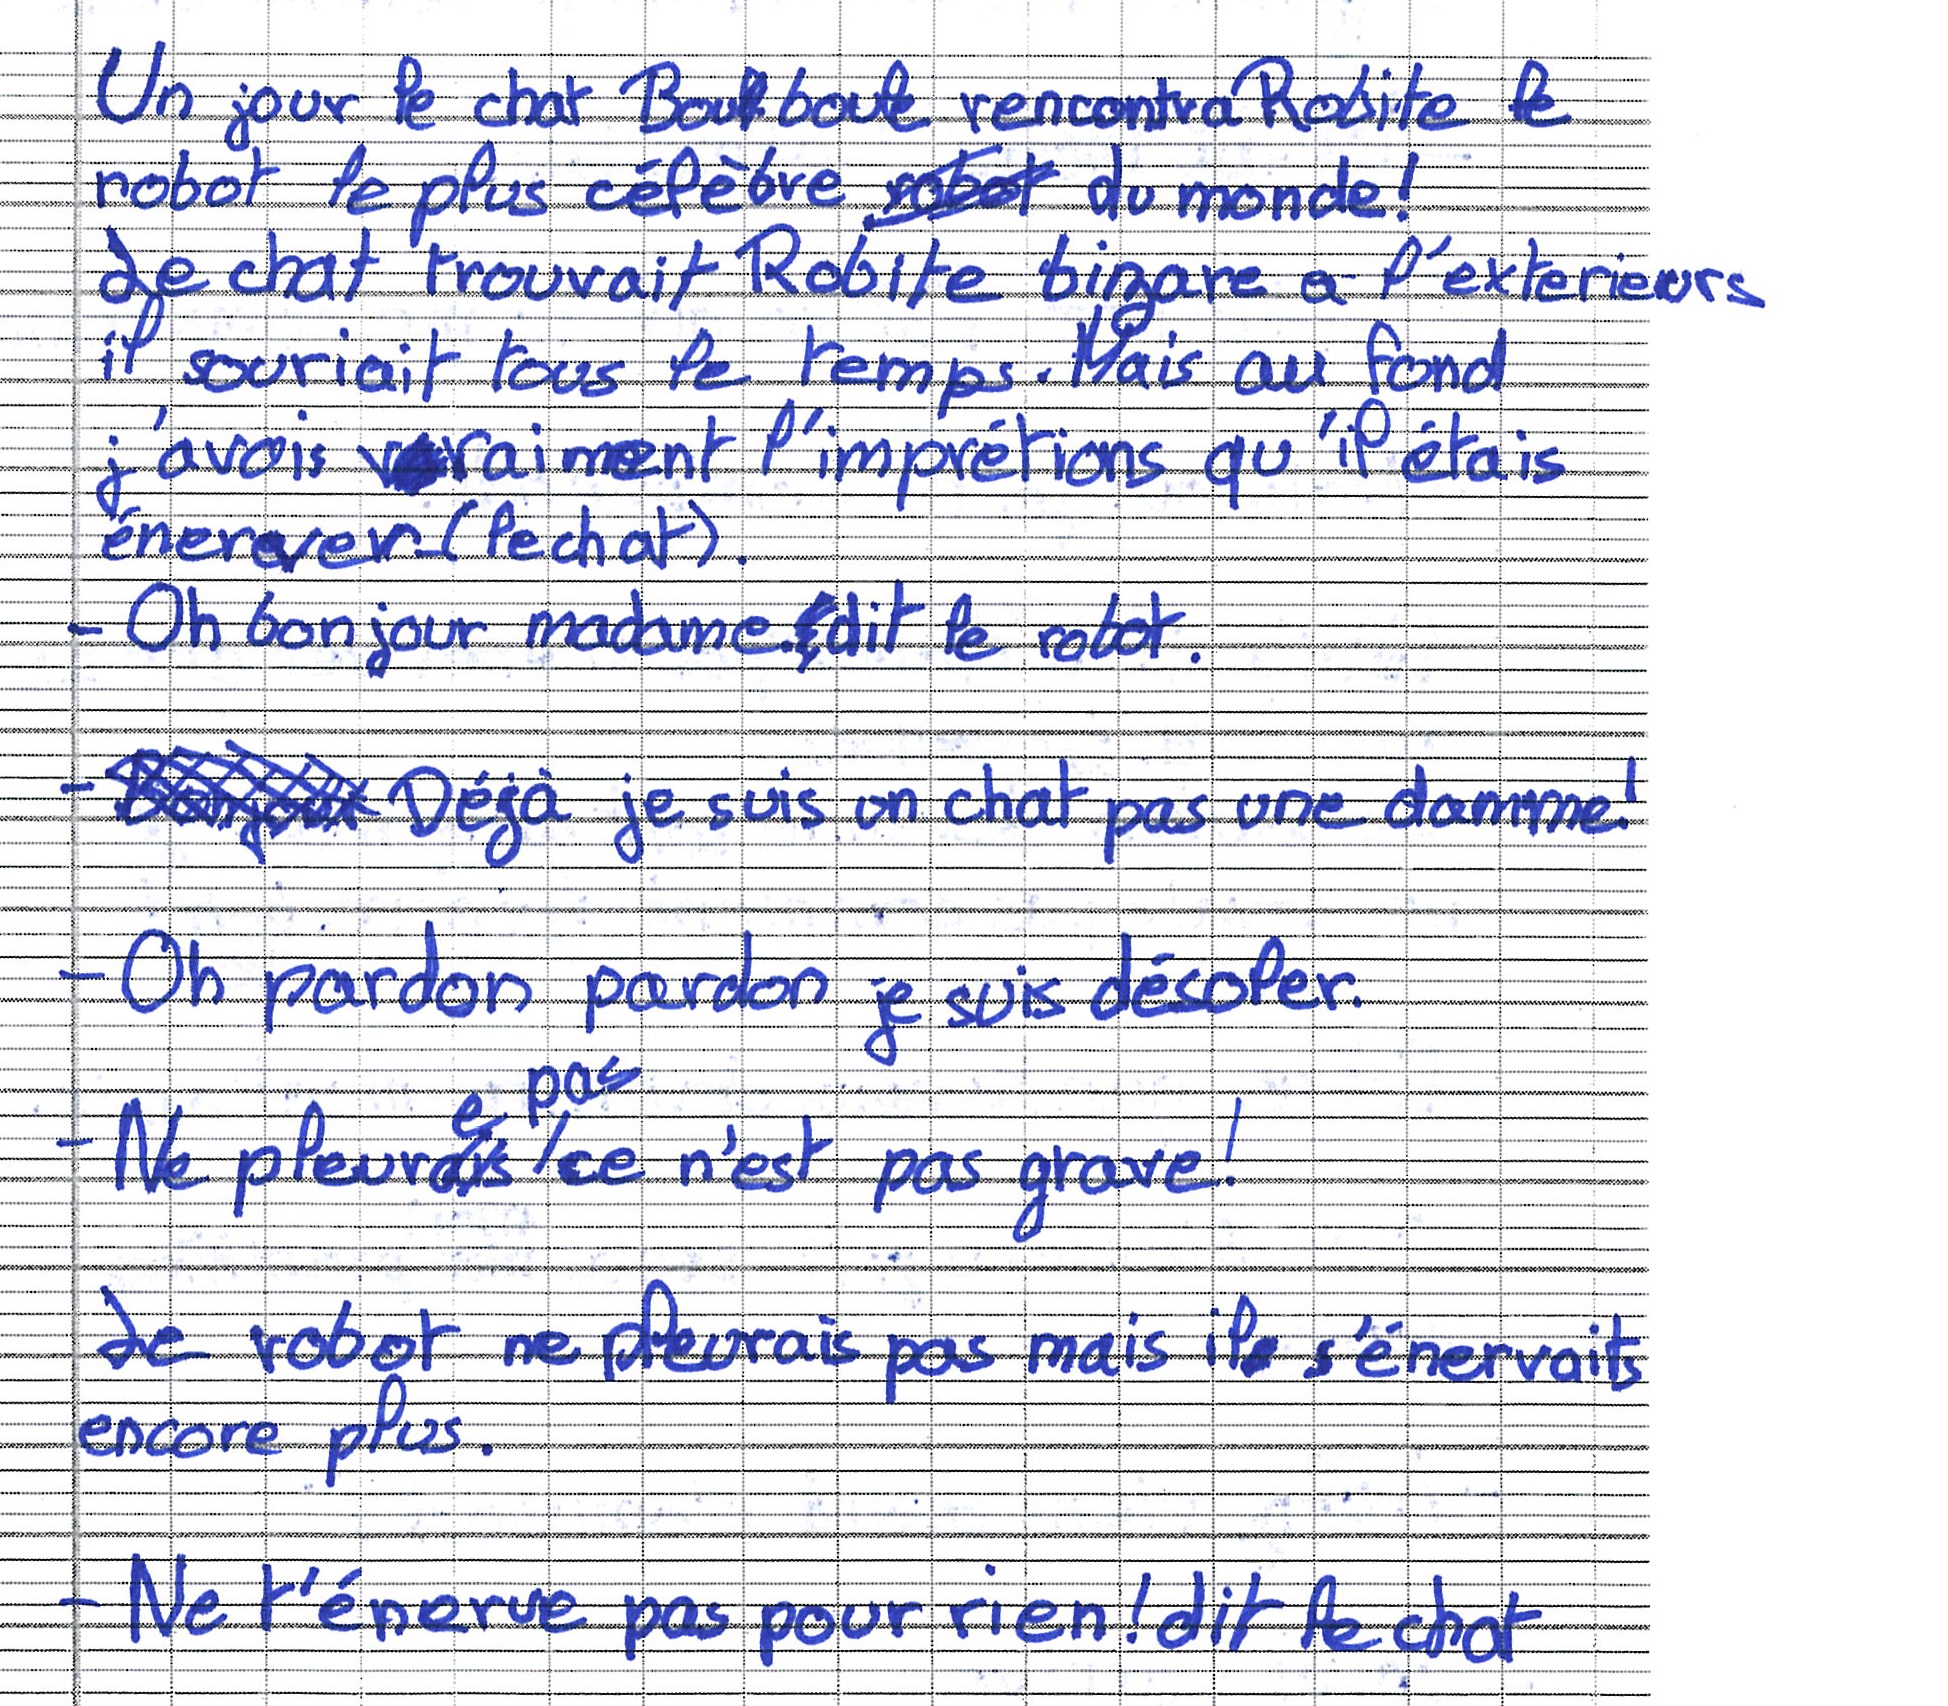 Un jour le chat Boulboule rencontra Robite le
robot le plus célèbre robot du monde!
Le chat trouvait Robite bizare a l'exterieurs
il souriait tous le temps. Mais au fond
j'avais vraiment l'imprétions qu'il étais
énerever (le chat).
- Oh bonjour madame. dit le robot.
- Bonjour Déjà je suis un chat pas une damme!
- Oh pardon pardon je suis désoler.
- Ne pleure pas ce n'est pas grave!
Le robot ne pleurais pas mais il s'énervaits
encore plus.
- Ne t'énerve pas pour rien! dit le chat